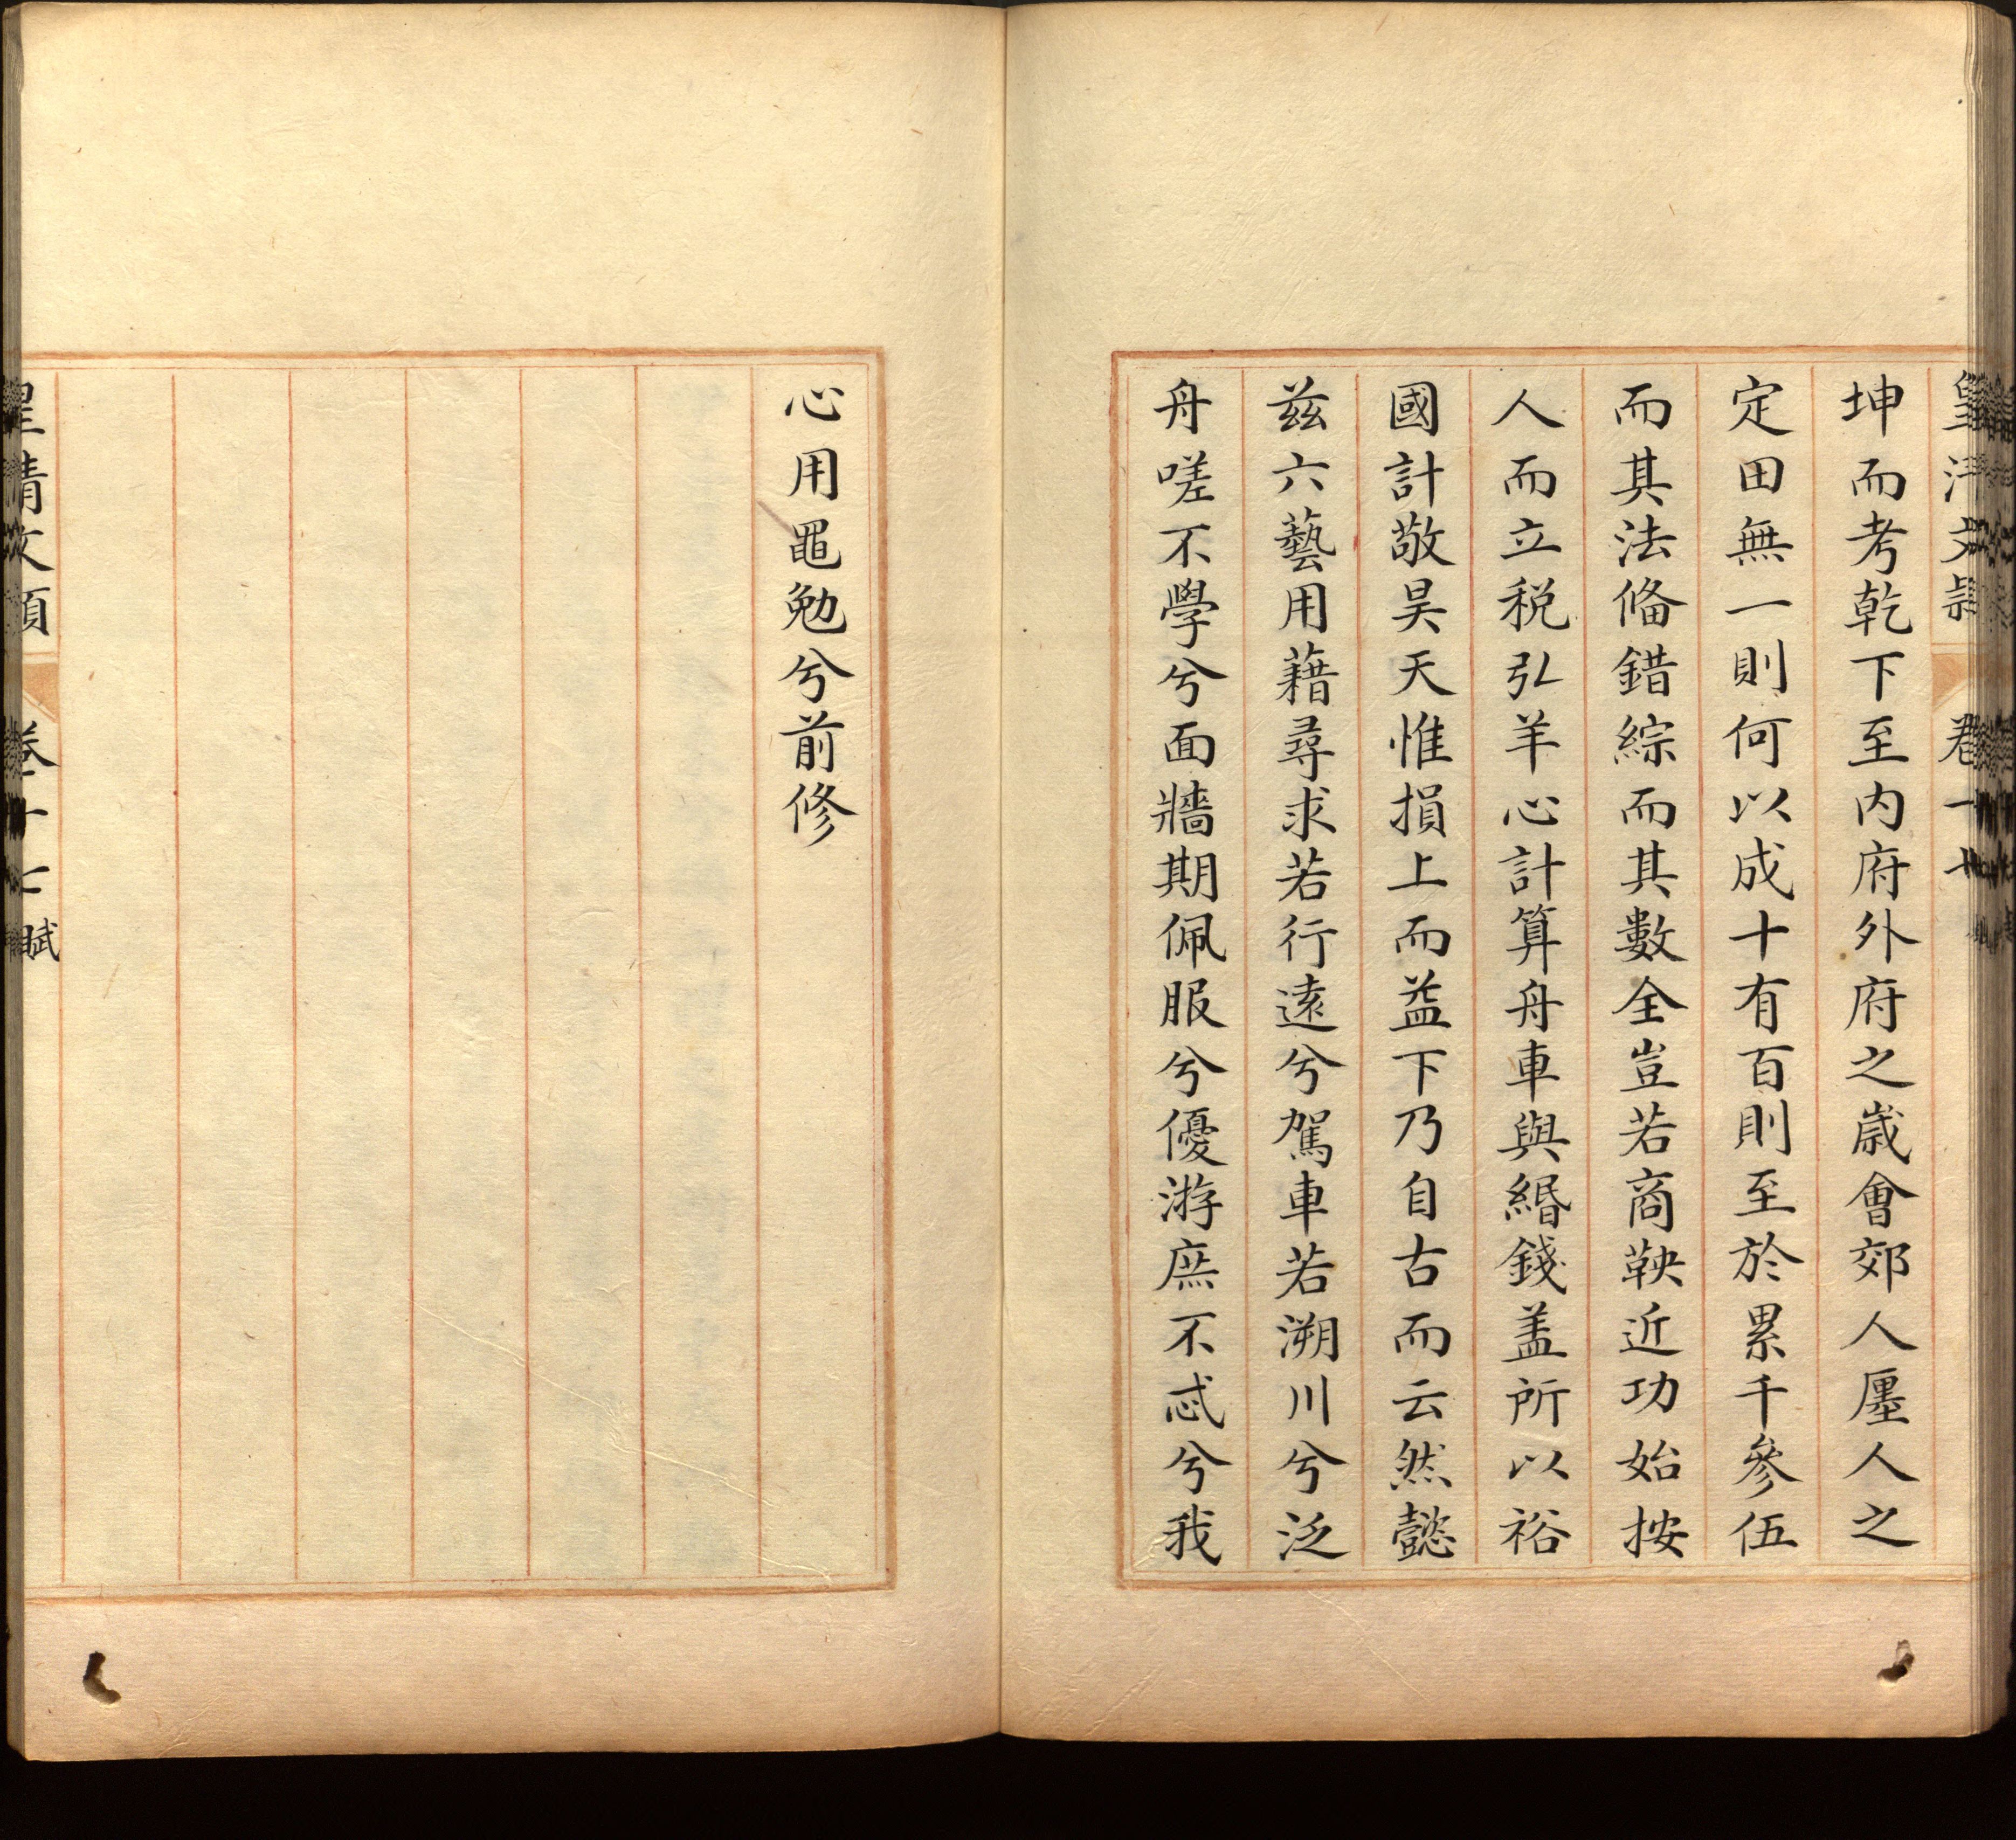 皇清文穎 卷十七
坤而考乾下至内府外府之歳會郊人㕓人之
定田無一則何以成十有百則至於累千參伍
而其法偹錯綜而其數全豈若商鞅近功始按
人而立税弘羊心計算舟車與緡錢盖所以裕
國計敬昊天惟損上而益下乃自古而云然懿
兹六藝用藉尋求若行逺兮駕車若溯川兮泛
舟嗟不學兮面牆期佩服兮優游庶不忒兮我
心用黽勉兮前修
皇清文穎 卷十七 賦